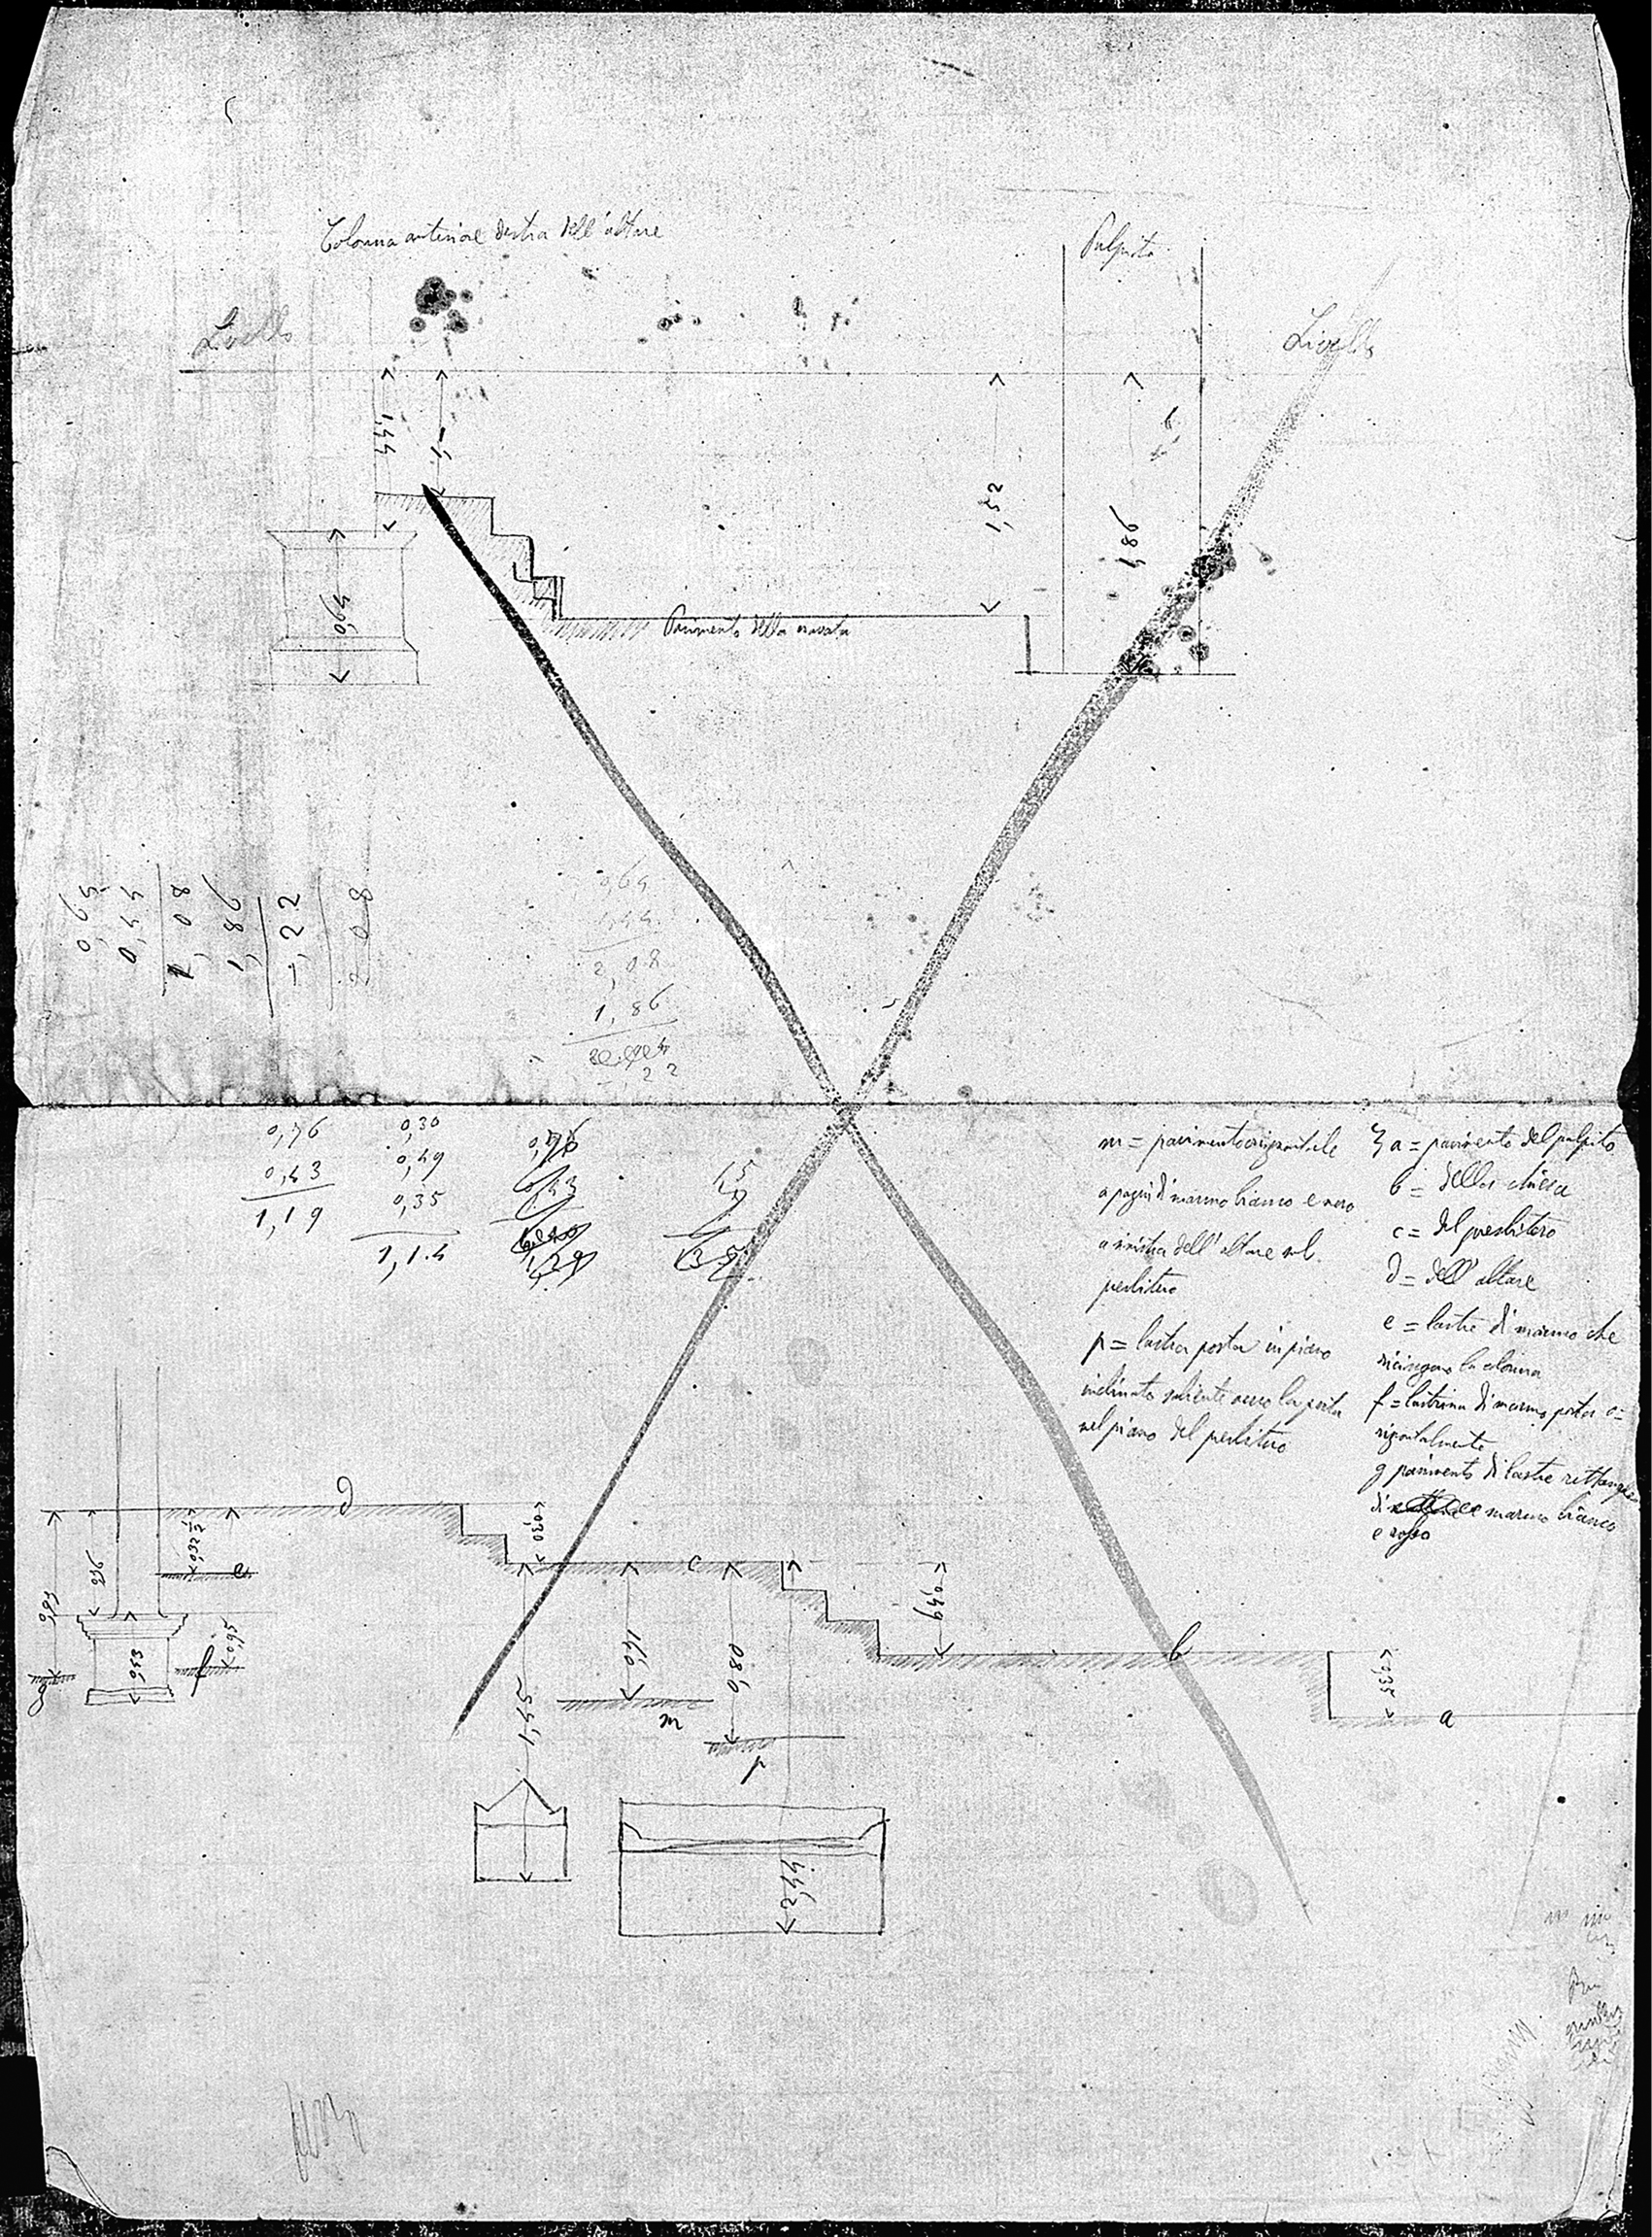 Colonna anteriore destra dell'altare
Pulpito
Livello
Livello
1,44
1,52
1,86
0,64
Pavimento della navata
0,65
0,44
1,08
1,86
-,22
2 08
0,64
1,44
2,08
1,86
22
0,76
0,43
1,19
0,30
0,49
0,35
1,14
0,76
m = pavimento orizontale
a pezzi di marmo bianco e nero
a sinistra dell'altare sul
presbitero
p = lastra posta in piano
inclinato saliente verso la porta
nel piano del presbitero
a = pavimento del pulpito
b = della chiesa
c = del presbitero
d = dell'altare
e = lastre di marmo che
ricingono la colonna
f = lastrina di marmo posta o=
rizontalmente
g pavimento di lastre rettang
di marmo bianco
e rosso
d
0,30
e
c
0,49
b
0,35
a
0,63
0,65
f
g
1,45
1,40
0,80
m
p
2,44